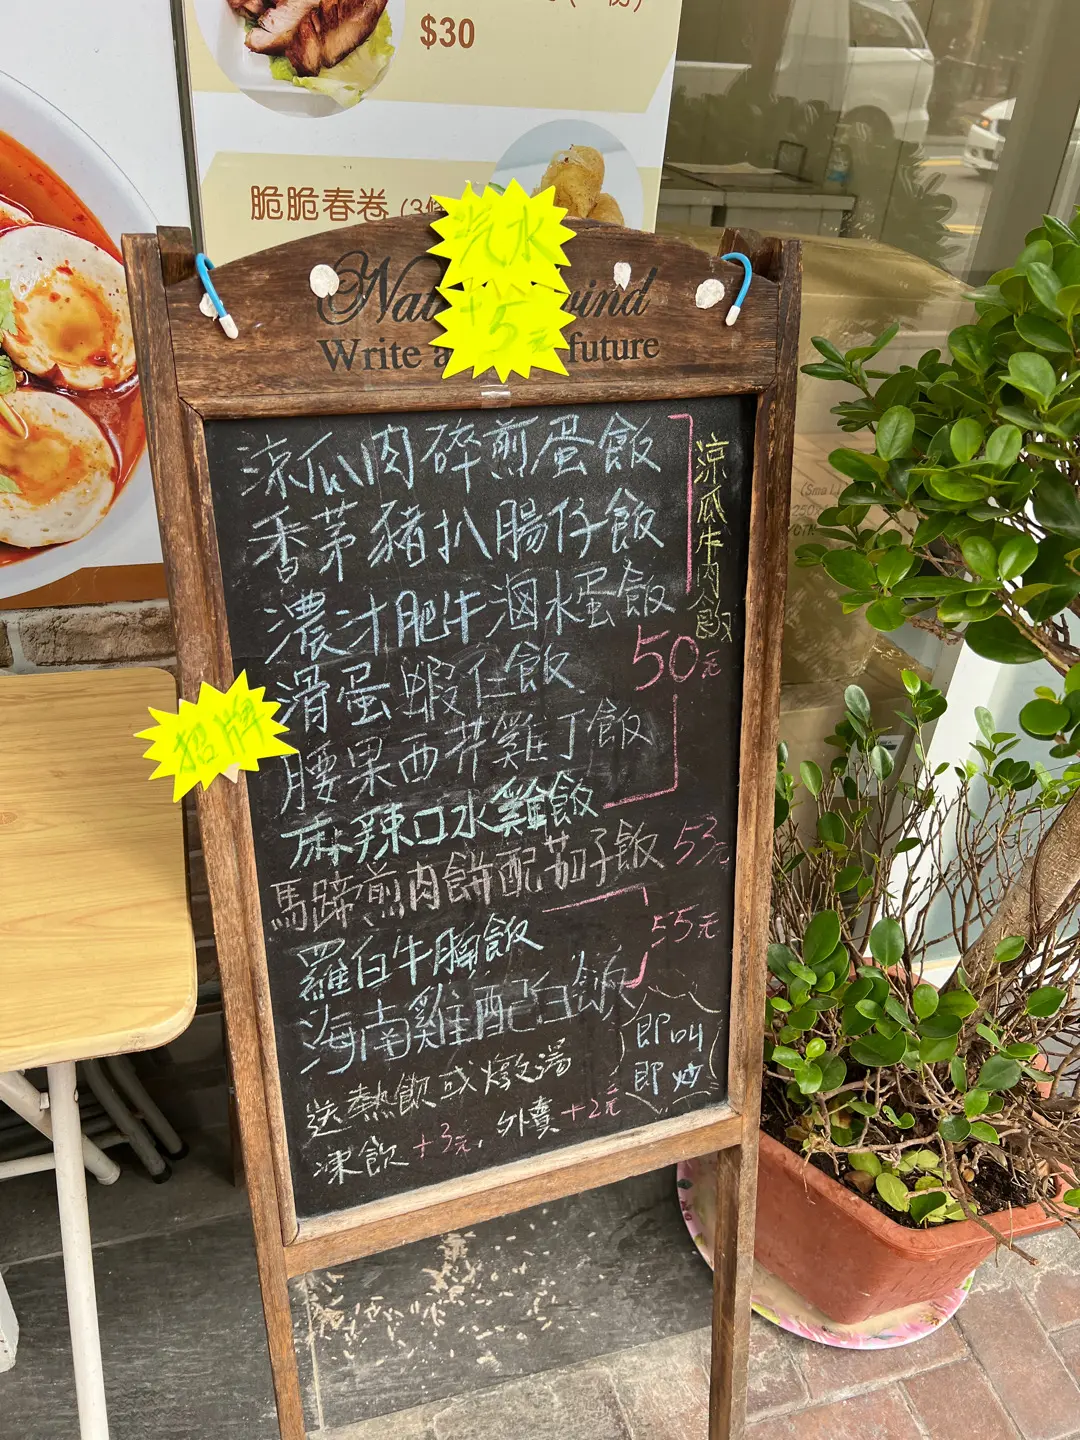 $30
脆脆春卷 (3條
汽水
+5元
Nat
ind
Write a
future
涼瓜肉碎煎蛋飯
香茅豬扒腸仔飯
濃汁肥牛滷水蛋飯
滑蛋蝦仁飯
腰果西芹雞丁飯
麻辣口水雞飯
涼瓜牛肉飯
50元
招牌
馬蹄煎肉餅配茄子飯 53元
羅白牛腩飯
海南雞配白飯
55元
即叫
即炒
送熱飲或燉湯
凍飲+3元, 外賣+2元